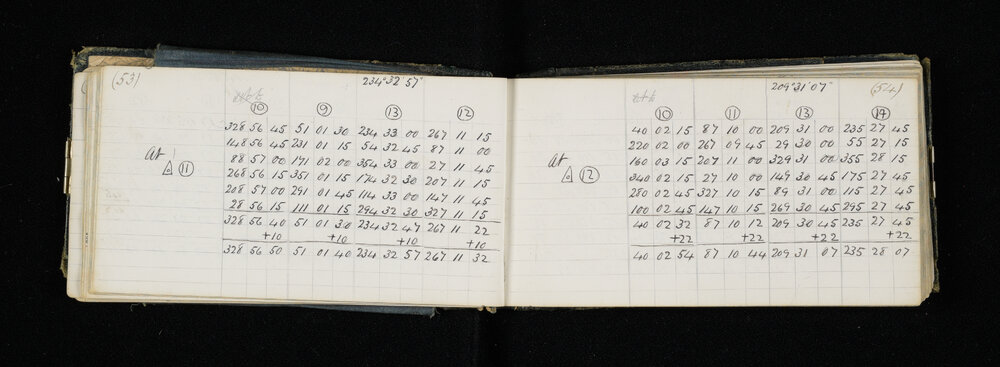 (53)
234° 32' 57"
⑩ ⑨ ⑬ ⑫
328 56 45 51 01 30 234 33 00 267 11 15
148 56 45 231 01 15 54 32 45 87 11 00
88 57 00 171 02 00 354 33 00 27 11 45
268 56 15 351 01 15 174 32 30 207 11 15
208 57 00 291 01 45 114 33 00 147 11 45
28 56 15 111 01 15 294 32 30 327 11 15
328 56 40 51 01 30 234 32 47 267 11 22
+10 +10 +10 +10
328 56 50 51 01 40 234 32 57 267 11 32
at
△ ⑪
209° 31' 07"
(54)
⑩ ⑪ ⑬ ⑭
40 02 15 87 10 00 209 31 00 235 27 45
220 02 00 267 09 45 29 30 00 55 27 15
160 03 15 207 11 00 329 31 00 355 28 15
340 02 15 27 10 00 149 30 45 175 27 45
280 02 45 327 10 15 89 31 00 115 27 45
100 02 45 147 10 15 269 30 45 295 27 45
40 02 32 87 10 12 209 30 45 235 27 45
+22 +22 +22 +22
40 02 54 87 10 44 209 31 07 235 28 07
at
△ ⑫